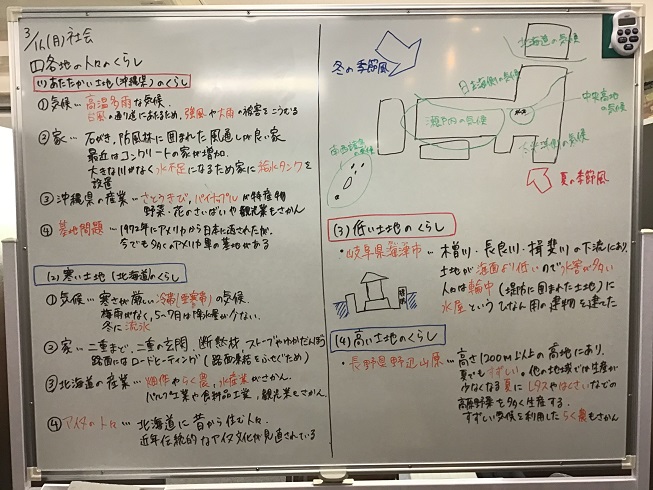 3/16(月)社会
四各地の人々のくらし
(1)あたたかい土地(沖縄県)のくらし
①気候… 高温多雨な気候.
台風の通り道にあたるため、強風や大雨の被害をこうむる
②家… 石がき、防風林に囲まれた風通しが良い家
最近はコンクリートの家が増加.
大きな川がなく水不足になるため家に給水タンクを
設置
③沖縄県の産業… さとうきび、パイナップルが特産物
野菜・花のさいばいや観光業もさかん
④基地問題… 1972年にアメリカから日本に返されたが、
今でも多くアメリカ軍の基地がある
(2)寒い土地(北海道)のくらし
①気候… 寒さが厳しい冷帯(亜寒帯)の気候.
梅雨がなく、5~7月は降水量が少ない.
冬に流氷
②家… 二重まど、二重の玄関、断熱材 ストーブやゆかだんぼう
路面にはロードヒーティング(路面凍結をふせぐため)
③北海道の産業… 畑作やらく農、水産業がさかん.
パルプ工業や食料品工業、観光業もさかん
④アイヌの人々… 北海道に昔から住む人々.
近年伝統的なアイヌ文化が見直されている
冬の季節風
北海道の気候
日本海側の気候
中央高地
の気候
瀬戸内の気候
南西諸島
の気候
太平洋側の気候
夏の季節風
(3)低い土地のくらし
・岐阜県海津市… 木曽川・長良川・揖斐川の下流にあり、
土地が海面より低いので水害が多い
人々は輪中(堤防に囲まれた土地)に
水屋というひなん用の建物を建てた
堤防
(4)高い土地のくらし
・長野県野辺山原… 高さ1200m以上の高地にあり、
夏でもすずしい。他の地域では生産が
少なくなる夏にレタスやはくさいなどの
高原野菜を多く生産する.
すずしい気候を利用したらく農もさかん